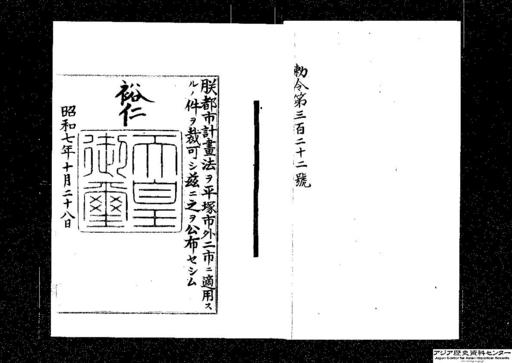 勅令第三百二十二號
朕都市計畫法ヲ平塚市外二市ニ適用ス
ルノ件ヲ裁可シ茲ニ之ヲ公布セシム
裕仁
天皇
御璽
昭和七年十月二十八日
アジア歴史資料センター
Japan Center for Asian Historical Records